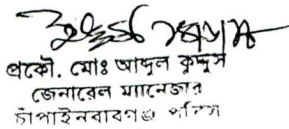 প্রকৌ. মোঃ আব্দুল কুদ্দুস
জেনারেল ম্যানেজার
চাঁপাইনবাবগঞ্জ